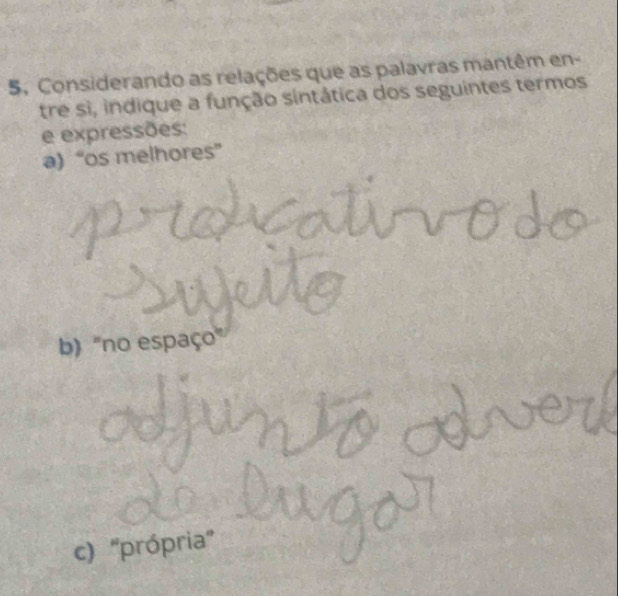 5. Considerando as relações que as palavras mantêm en-
tre si, indique a função sintática dos seguintes termos
e expressões:
a) “os melhores”
predicativo do
sujeito
b) “no espaço”
adjunto adverb
de lugar
c) “própria”